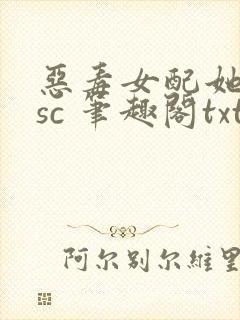 惡毒女配她
sc 筆趣閣txt
阿尔别尔維里